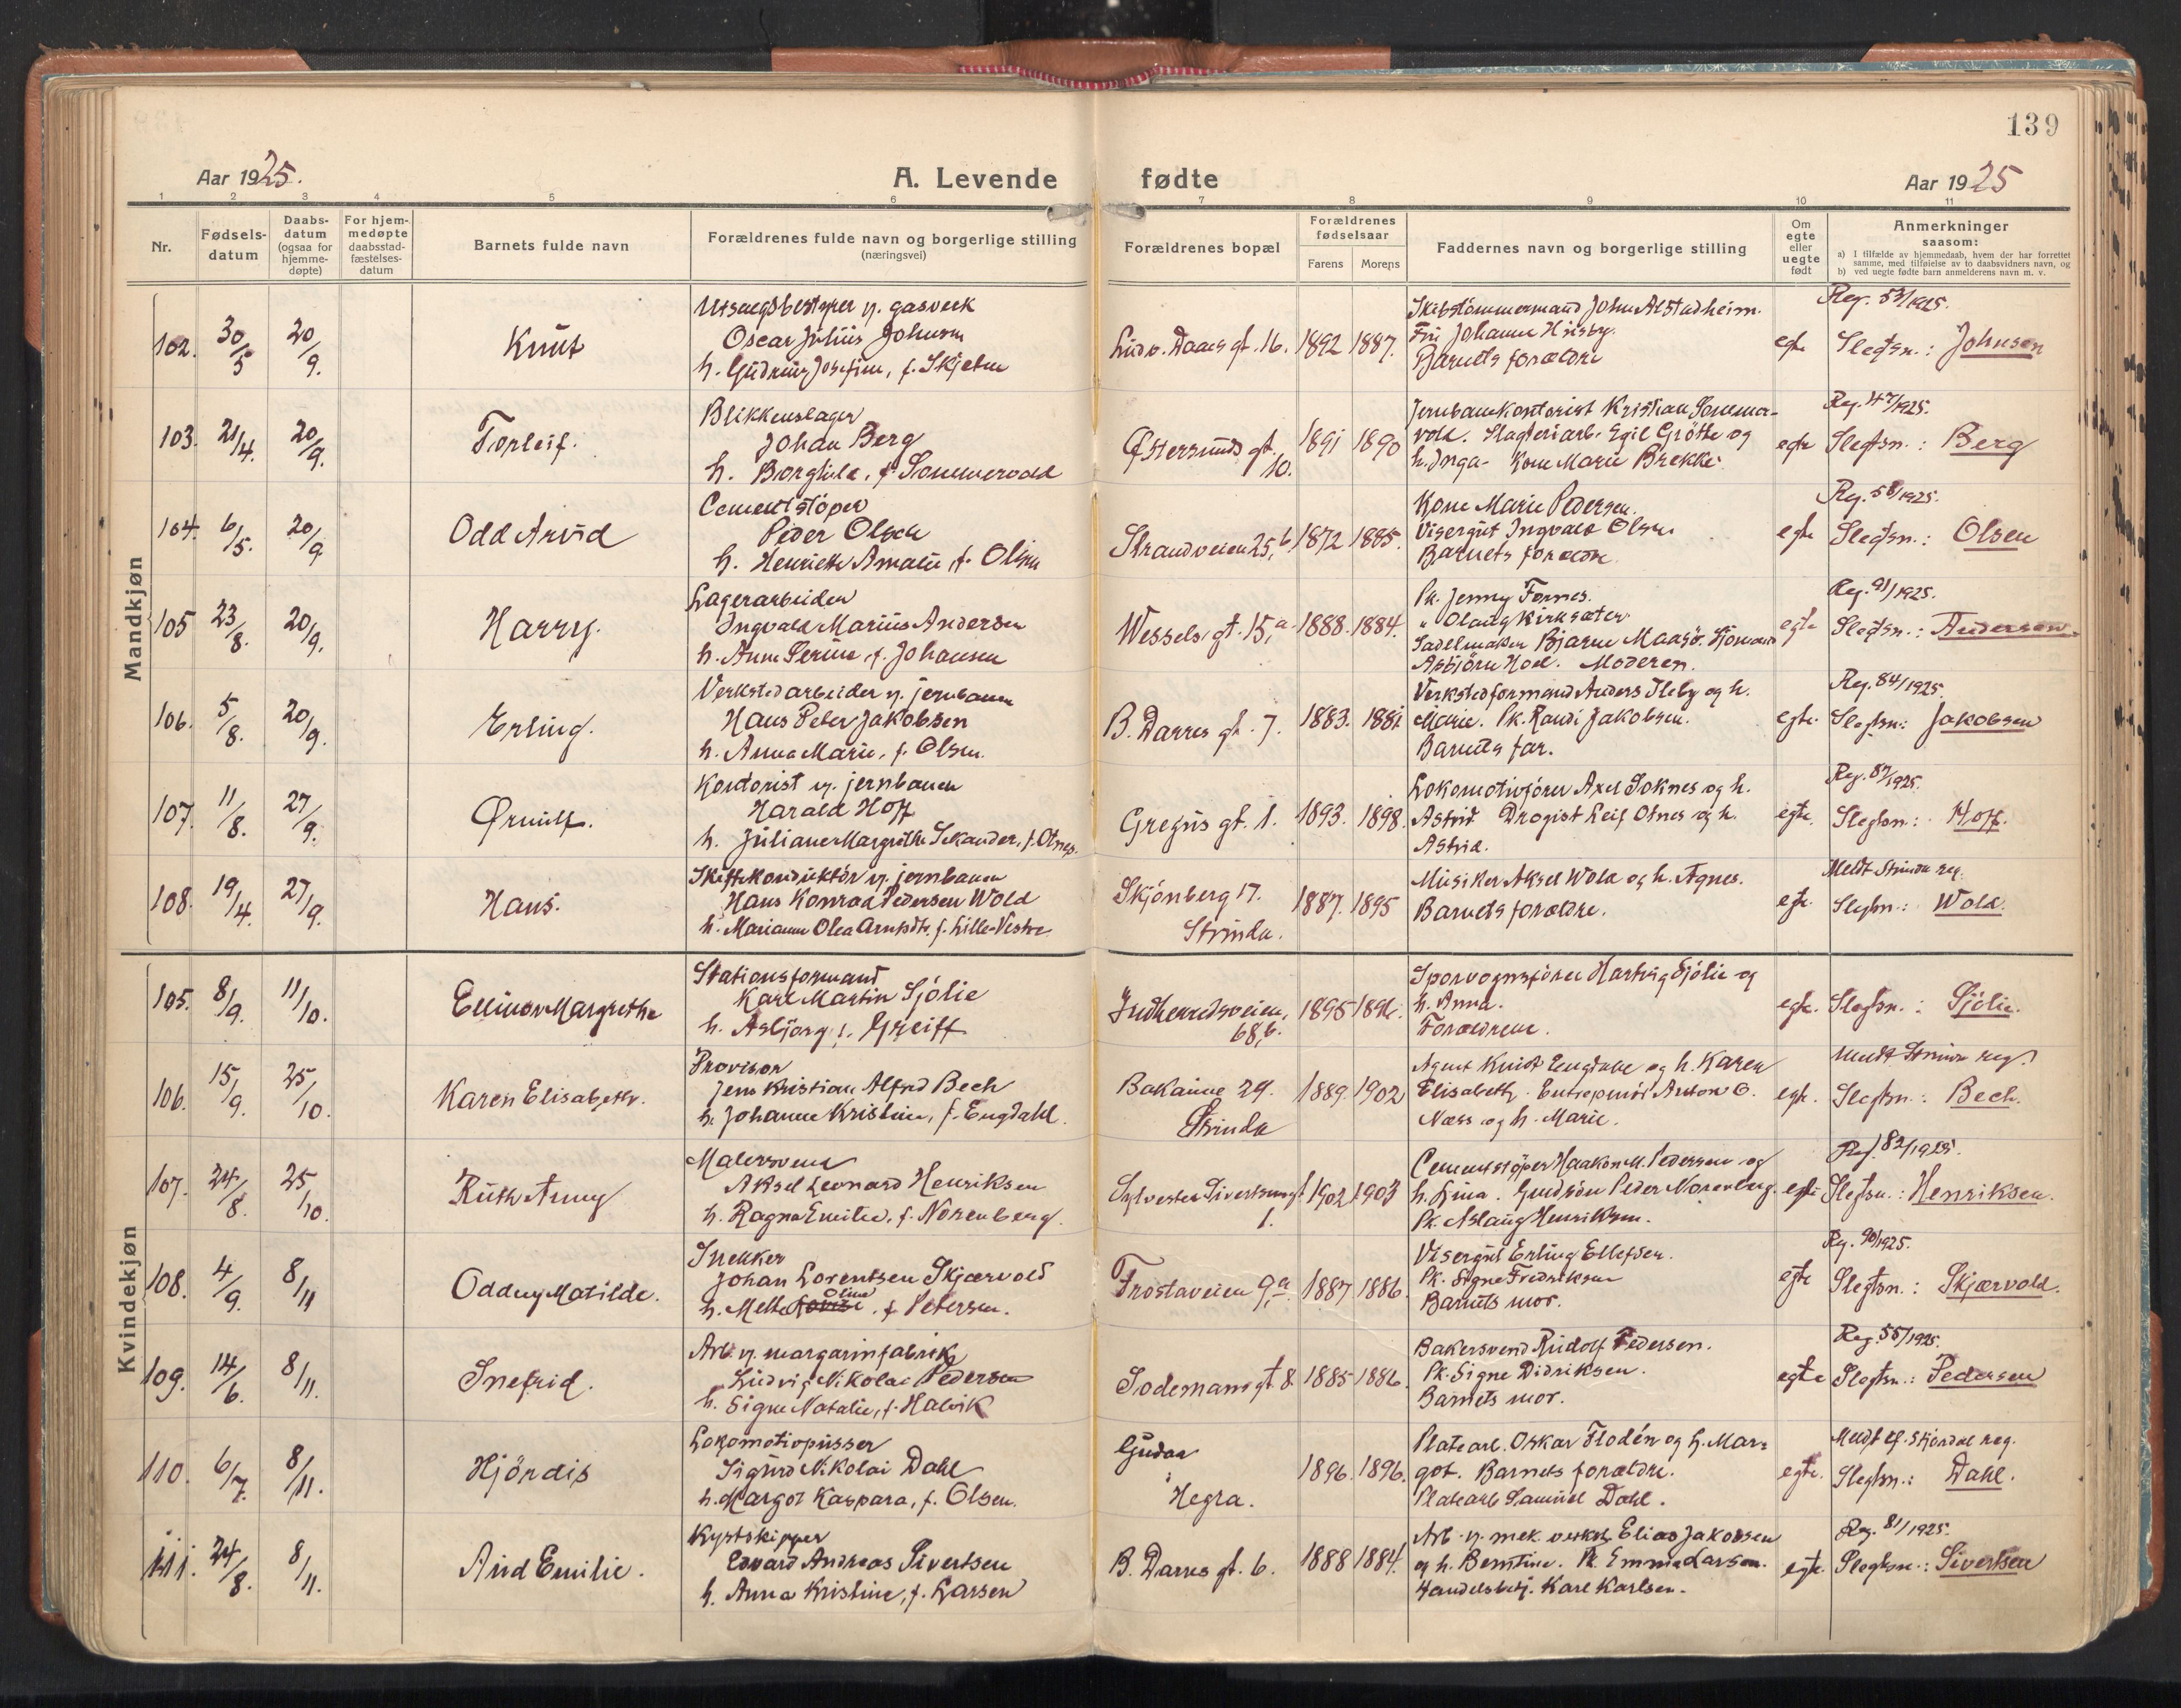 139
Aar 1925.
A. Levende fødte
Aar 1925
1 2 3 4 5 6 7 8 9 10 11
Nr.
Fødsels-
datum
Daabs-
datum
(ogsaa for
hjemme-
døpte)
For hjem-
medøpte
daabsstad-
fæstelses-
datum
Barnets fulde navn
Forældrenes fulde navn og borgerlige stilling
(næringsvei)
Forældrenes bopæl
Forældrenes
fødselsaar
Farens Morens
Faddernes navn og borgerlige stilling
Om
egte
eller
uegte
født
Anmerkninger
saasom:
a) I tilfælde av hjemmedaab, hvem der har forrettet
samme, med tilføielse av to daabsvidners navn, og
b) ved uegte fødte barn anmelderens navn m. v.
Mandkjøn
102. 30/5 20/9. Knut
Utsalgsbestyrer v. gasverk
Oscar Julius Johnsen
h. Gudrun Josefine, f. Skjelm
Ludv. Daaes gt. 16. 1892 1887.
Skibstømmermand John Alstadheim.
Fru Johanne Husby.
Barnets forældre
egte
Reg. 53/1925.
Slegtsn.: Johnsen
103. 21/4. 20/9. Torleif.
Blikkenslager
Johan Berg
h. Borghild, f. Sommervold
Østersunds gt.
10.
1891 1890
Jernbanekontorist Kristian Sommer-
vold. Slagteriarb. Egil Grøtte og
h. Inga. Kone Marie Brekke.
egte
Reg. 47/1925.
Slegtsn.: Berg
104. 6/5. 20/9 Odd Arvid
Cementstøper
Peder Olsen
h. Henriette Amalie, f. Olsen
Strandveien 25,b 1872 1885.
Kone Marie Pedersen.
Visergut Ingvald Olsen.
Barnets forældre.
egte
Reg. 58/1925.
Slegtsn.: Olsen
105 23/8. 20/9. Harry.
Lagerarbeider
Ingvald Marius Andersen
h. Anne Serine, f. Johansen
Wessels gt. 15,a 1888. 1884.
Pk. Jenny Fornes.
" Olaug Kirksæter
Sadelmaker Bjarne Maasø. Sjømand
Asbjørn Hoel. Moderen.
egte
Reg. 91/1925.
Slegtsn.: Andersen.
106. 5/8. 20/9. Erling.
Verkstedarbeider v. jernbanen
Hans Peter Jakobsen
h. Anna Marie, f. Olsen.
B. Darres gt. 7. 1883. 1881.
Verkstedformand Anders Ileby og h.
Marie. Pk. Randi Jakobsen.
Barnets far.
egte.
Reg. 84/1925.
Slegtsn.: Jakobsen
107. 11/8. 27/9. Ørnulf.
Kontorist v. jernbanen
Harald Hoff
h. Juliane Margrethe Sekander, f. Otnes.
Gregus gt. 1. 1893. 1898.
Lokomotivfører Axel Soknes og h.
Astrid. Drogist Leif Otnes og h.
Astrid.
egte.
Reg. 87/1925.
Slegtsn.: Hoff.
108. 19/4. 27/9. Hans.
Skiftekonduktør v. jernbanen
Hans Konrad Pedersen Wold
h. Marianne Olea Arntsdtr. f. Lille-Vestre
Skjønberg 17.
Strinda.
1887. 1895
Musiker Aksel Wold og h. Agnes.
Barnets forældre.
egte.
Meldt Strinda reg.
Slegtsn.: Wold.
Kvindekjøn
105. 8/9. 11/10. Ellinor Margrethe
Stationsformand
Karl Martin Sjølie
h. Asbjørg, f. Greiff
Indherredsveien,
68,b.
1895 1896.
Sporvognsfører Hartvig Sjølie og
h. Anna.
Forældrene.
egte.
Slegtsn.: Sjølie.
106. 15/9. 25/10. Karen Elisabeth.
Provisor
Jens Kristian Alfred Bech
h. Johanne Kristine, f. Engdahl.
Bakaune 29.
Strinda
1889. 1902
Agent Knut Engdahl og h. Karen
Elisabeth. Entreprenør Anton O.
Næss og h. Marie.
egte.
Meldt Strinda reg.
Slegtsn.: Bech.
107. 24/8. 25/10. Ruth Anny
Malersvend
Aksel Leonard Henriksen
h. Ragna Emilie, f. Norenberg.
Sylvester Sivertsens gt.
1.
1902 1903
Cementstøper Haakon M. Pedersen og
h. Lina. Peder Norenberg.
Pk. Aslaug Henriksen.
egte
Reg. 82/1925.
Slegtsn.: Henriksen.
108. 4/9. 8/11 Oddny Matilde.
Snekker
Johan Lorentsen Skjærvold
h. Mette Oline, f. Petersen.
Frostaveien 9,a 1887 1886.
Visergut Erling Ellefsen.
Pk. Signe Fredriksen
Barnets mor.
egte
Reg. 90/1925.
Slegtsn.: Skjærvold.
109. 14/6. 8/11. Snefrid.
Arb. v. margarinfabrik
Ludvig Nikolai Pedersen
h. Signe Natalie, f. Halvik
Sodemans gt. 8. 1885 1886.
Bakersvend Rudolf Pedersen.
Pk. Signe Didriksen.
Barnets mor.
egte
Reg. 55/1925.
Slegtsn.: Pedersen
110. 6/7. 8/11. Hjørdis
Lokomotivpusser
Sigurd Nikolai Dahl
h. Margot Kaspara, f. Olsen.
Gudaa
Hegra.
1896. 1896.
Platearb. Oskar Flodén og h. Mar-
got. Barnets forældre.
Platearb. Samuel Dahl.
egte.
Meldt Stjørdal reg.
Slegtsn.: Dahl.
111. 24/8. 8/11. Aud Emilie.
Kystskipper
Edvard Andreas Sivertsen
h. Anna Kristine, f. Larsen
B. Darres gt. 6. 1888 1884.
Arb. v. mek. verkst. Elias Jakobsen
og h. Berntine. Pk. Emma Larsen.
Handelsbetj. Karl Karlsen.
egte.
Reg. 81/1925.
Slegtsn.: Sivertsen